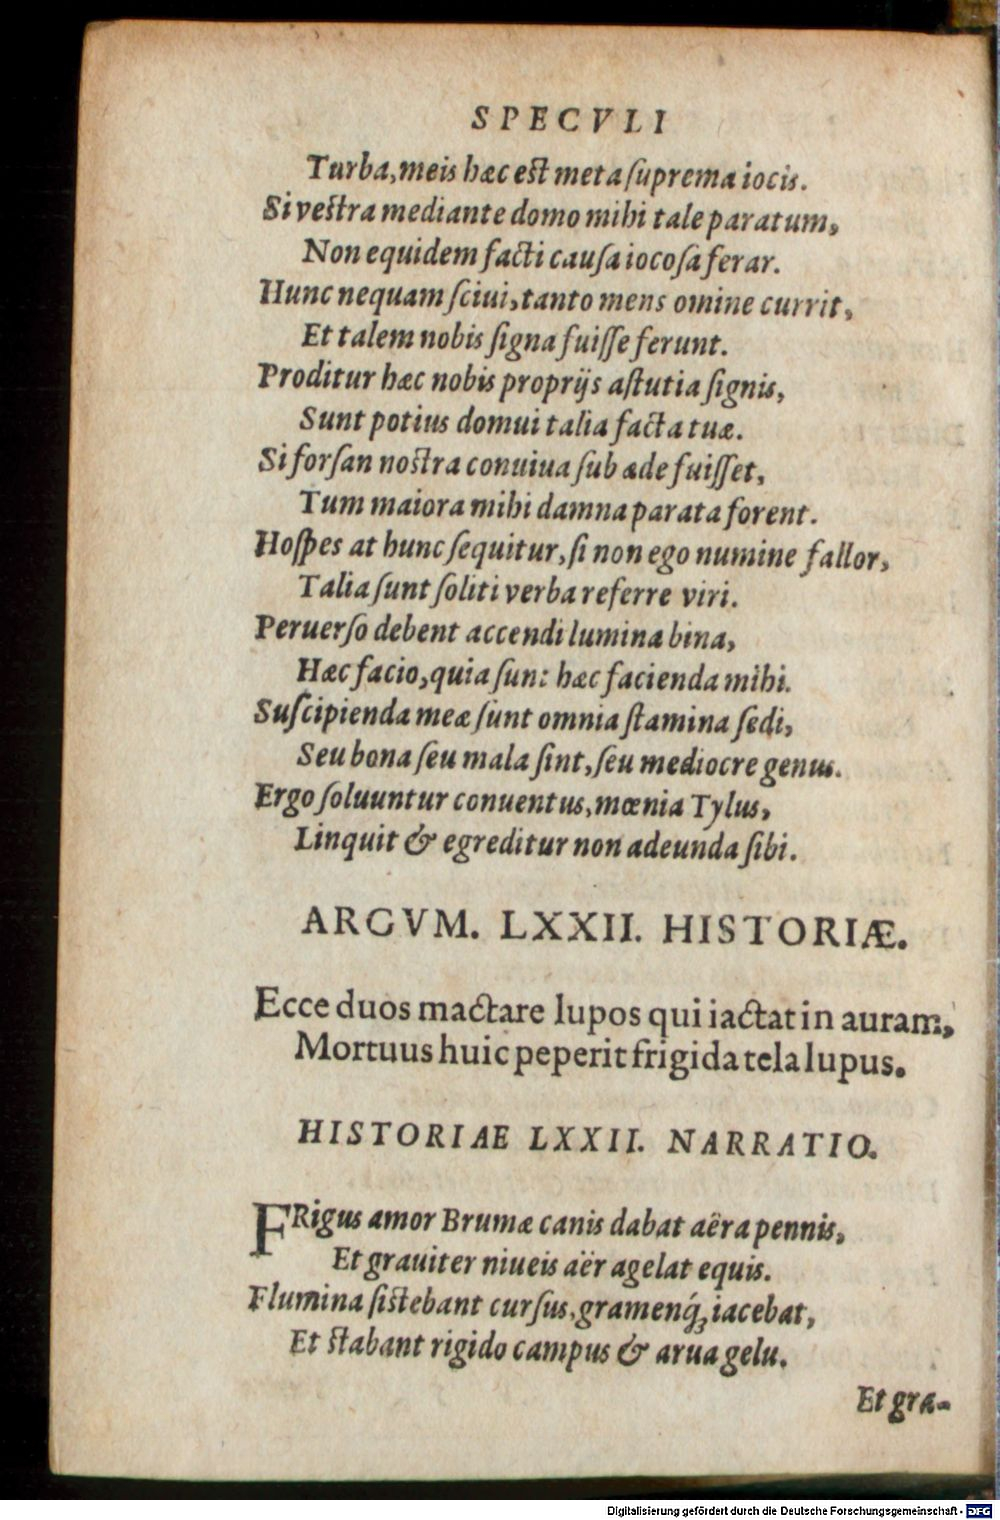 SPECVLI
Turba, meis hæc est meta ſuprema iocis.
Si vestra mediante domo mihi tale paratum,
Non equidem facti cauſa iocoſa ferar.
Hunc nequam ſciui, tanto mens omine currit,
Et talem nobis ſigna fuiſſe ferunt.
Proditur hæc nobis proprijs aſtutia ſignis,
Sunt potius domui talia facta tuæ.
Si forſan nostra conuiua ſub æde fuiſſet,
Tum maiora mihi damna parata forent.
Hoſpes at hunc ſequitur, ſi non ego numine fallor,
Talia ſunt ſoliti verba referre viri.
Peruerſo debent accendi lumina bina,
Hæc facio, quia ſunt hæc facienda mihi.
Suſcipienda meæ ſunt omnia ſtamina ſedi,
Seu bona ſeu mala ſint, ſeu mediocre genus.
Ergo ſoluuntur conuentus, mœnia Tylus,
Linquit & egreditur non adeunda ſibi.
ARGVM. LXXII. HISTORIÆ.
Ecce duos mactare lupos qui iactat in auram,
Mortuus huic peperit frigida tela lupus.
HISTORIAE LXXII. NARRATIO.
FRigus amor Brumæ canis dabat aëra pennis,
Et grauiter niueis aër agelat equis.
Flumina ſistebant curſus, gramenq́ꝫ iacebat,
Et stabant rigido campus & arua gelu.
Et gra-
Digitalisierung gefördert durch die Deutsche Forschungsgemeinschaft - DFG